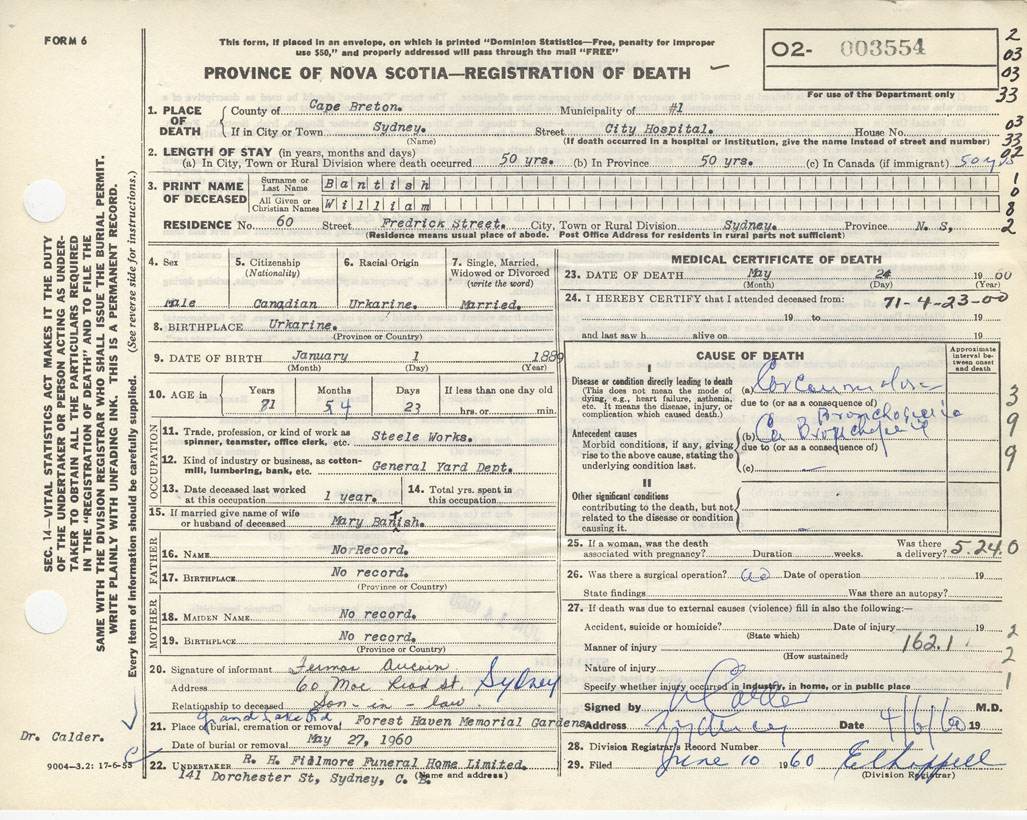 FORM 6
This form, if placed in an envelope, on which is printed "Dominion Statistics—Free, penalty for improper
use $50," and properly addressed will pass through the mail "FREE"
PROVINCE OF NOVA SCOTIA—REGISTRATION OF DEATH
O2- 003554
For use of the Department only
2
03
03
33
03
33
02
1
0
8
2
1. PLACE OF DEATH
County of Cape Breton. Municipality of #1
If in City or Town Sydney. Street City Hospital. House No.
(Name) (If death occurred in a hospital or institution, give the name instead of street and number)
2. LENGTH OF STAY (in years, months and days)
(a) In City, Town or Rural Division where death occurred 50 yrs. (b) In Province 50 yrs. (c) In Canada (if immigrant) 50 yrs
3. PRINT NAME OF DECEASED
Surname or Last Name Bantish
All Given or Christian Names William
RESIDENCE No. 60 Street Fredrick Street. City, Town or Rural Division Sydney. Province N. S,
(Residence means usual place of abode. Post Office Address for residents in rural parts not sufficient)
4. Sex
male
5. Citizenship
(Nationality)
Canadian
6. Racial Origin
Urkarine.
7. Single, Married, Widowed or Divorced
(write the word)
Married.
8. BIRTHPLACE Urkarine.
(Province or Country)
9. DATE OF BIRTH January 1 1889
(Month) (Day) (Year)
10. AGE in
Years Months Days If less than one day old
54 23 hrs. or min.
OCCUPATION
11. Trade, profession, or kind of work as
spinner, teamster, office clerk, etc. Steele Works.
12. Kind of industry or business, as cotton-
mill, lumbering, bank, etc. General Yard Dept.
13. Date deceased last worked
at this occupation 1 year.
14. Total yrs. spent in
this occupation
15. If married give name of wife
or husband of deceased Mary Bantish.
FATHER
16. NAME No Record.
17. BIRTHPLACE No record.
(Province or Country)
MOTHER
18. MAIDEN NAME No record.
19. BIRTHPLACE No record.
(Province or Country)
20. Signature of informant Aucoin
Address 60 Mac St. Sydney
Relationship to deceased Son-in-law.
Grand Lake Rd
21. Place of burial, cremation or removal Forest Haven Memorial Gardens
Date of burial or removal May 27, 1960
22. UNDERTAKER R. H. Fillmore Funeral Home Limited.
141 Dorchester St, Sydney, C. B.
(Name and address)
MEDICAL CERTIFICATE OF DEATH
23. DATE OF DEATH May 24 1960
(Month) (Day) (Year)
24. I HEREBY CERTIFY that I attended deceased from: 71-4-23-00
19 to 19
and last saw h alive on 19
CAUSE OF DEATH
Approximate interval between onset and death
I
Disease or condition directly leading to death
(This does not mean the mode of
dying, e.g., heart failure, asthenia,
etc. It means the disease, injury, or
complication which caused death.)
(a)
due to (or as a consequence of)
Antecedent causes
Morbid conditions, if any, giving
rise to the above cause, stating the
underlying condition last.
(b) Ca
due to (or as a consequence of)
(c)
II
Other significant conditions
contributing to the death, but not
related to the disease or condition
causing it.
3
9
9
25. If a woman, was the death
associated with pregnancy? Duration weeks. Was there
a delivery? 5.24.0
26. Was there a surgical operation? no Date of operation 19
State findings Was there an autopsy?
27. If death was due to external causes (violence) fill in also the following:—
Accident, suicide or homicide? Date of injury 19
(State which)
Manner of injury 162.1
(How sustained)
Nature of injury
Specify whether injury occurred in industry, in home, or in public place
2
2
1
Signed by Calder M.D.
Address Sydney Date 4/6/60 19
28. Division Registrar's Record Number
29. Filed June 10 1960
(Division Registrar)
SEC. 14—VITAL STATISTICS ACT MAKES IT THE DUTY
OF THE UNDERTAKER OR PERSON ACTING AS UNDER-
TAKER TO OBTAIN ALL THE PARTICULARS REQUIRED
IN THE "REGISTRATION OF DEATH" AND TO FILE THE
SAME WITH THE DIVISION REGISTRAR WHO SHALL ISSUE THE BURIAL PERMIT.
WRITE PLAINLY WITH UNFADING INK. THIS IS A PERMANENT RECORD.
Every item of information should be carefully supplied. (See reverse side for instructions.)
Dr. Calder.
9004—3.2: 17-6-55